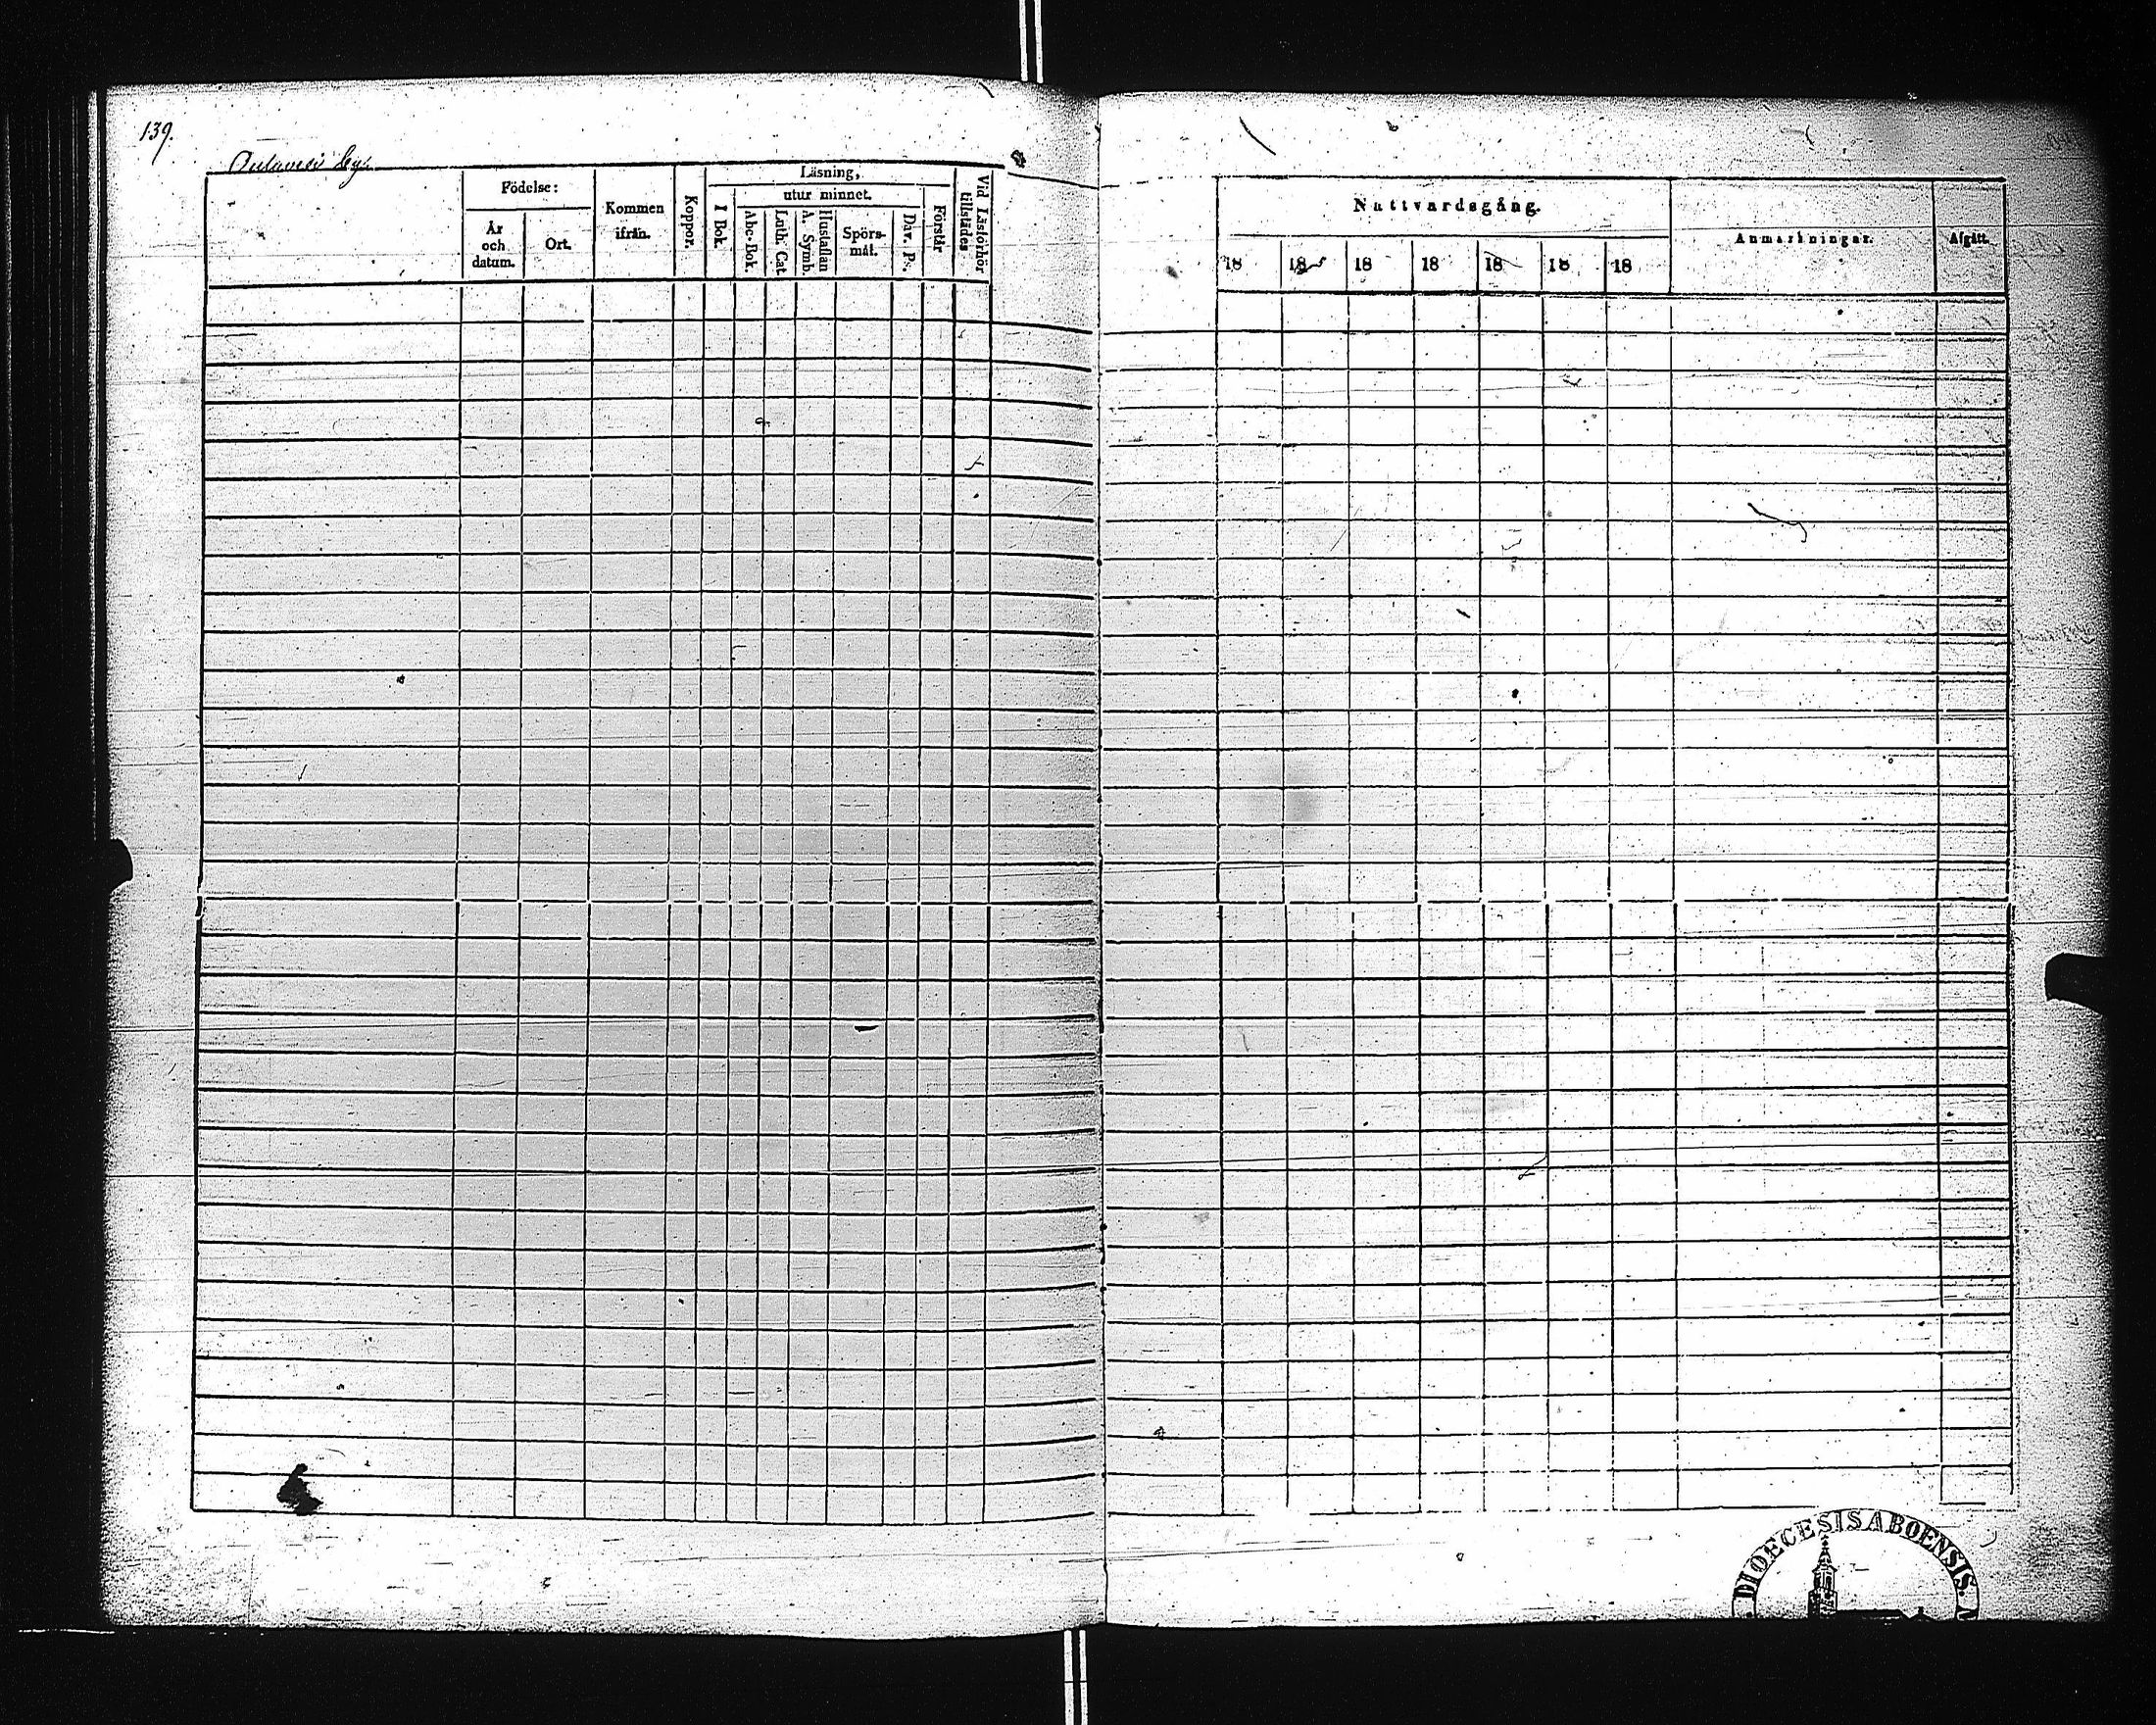 139.
by.
Födelse:
År och datum.
Ort.
Kommen ifrån.
Koppor.
Läsning,
I Bok.
utur minnet.
Abc-Bok.
Luth. Cat.
Hustaflan A. Symb.
Spörsmål.
Dav. Ps.
Förstår
Vid Läsförhör tillstädes
Nattvardsgång.
18 18 18 18 18 18 18
Anmärkningar.
Afgått.
DIOECESIS ABOENSIS